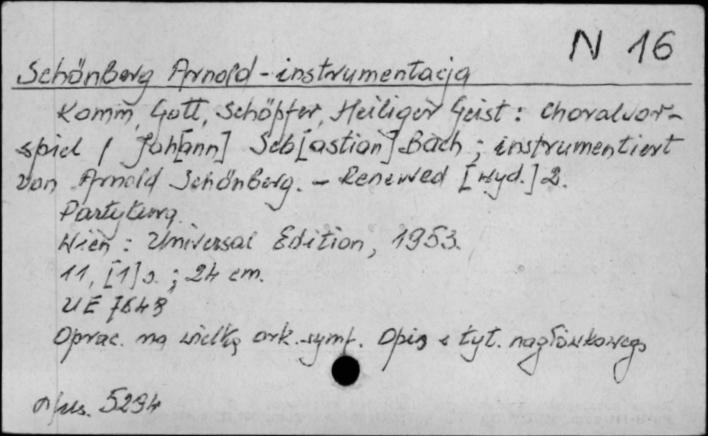 N 16
Schönberg Arnold - instrumentacja
Komm, Gott, Schöpfer, Heiliger Geist : Choralvor-
spiel / Joh[ann] Seb[astian] Bach ; instrumentiert
von Arnold Schönberg. - Renewed [wyd.] 2.
Partytura.
Wien : Universal Edition, 1953.
11, [1] s. ; 24 cm.
UE 7648
Oprac. na wielką ork. symf. Opis z tyt. nagłówkowego
5294